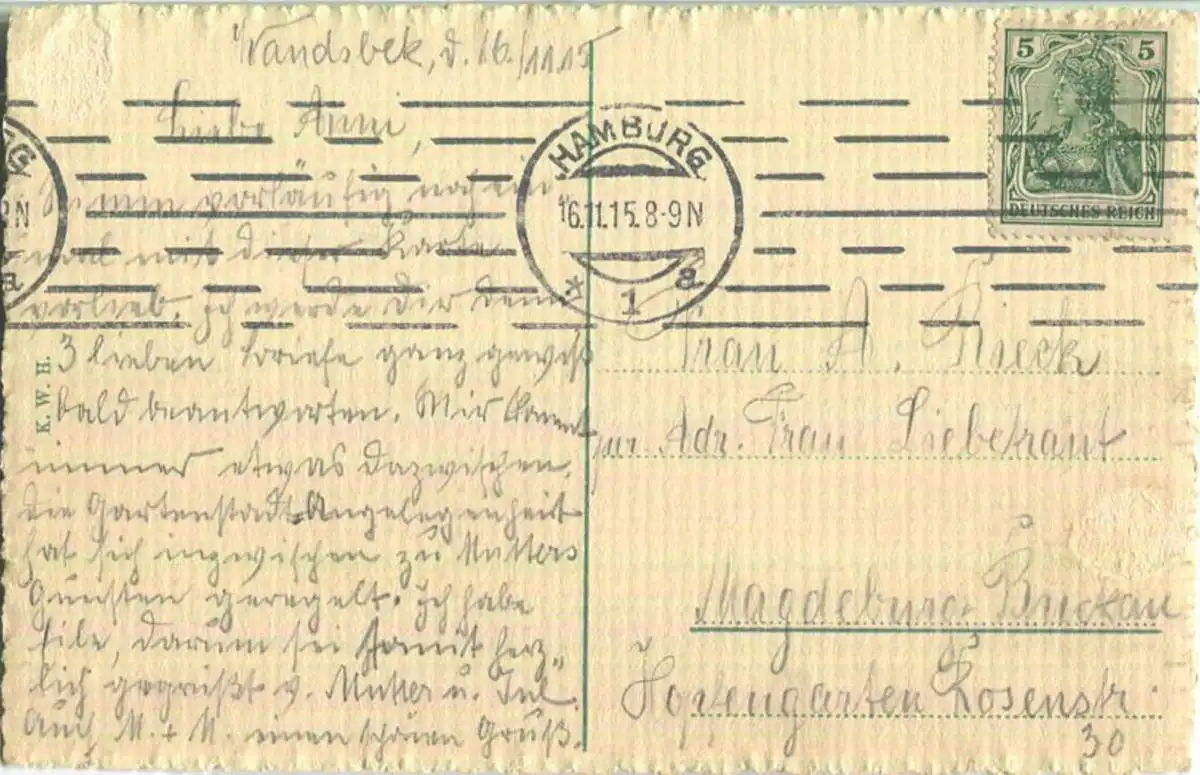 Wandsbek, d. 16./11.15
Liebe Anni,
Nimm vorläufig noch ein
mal mit dieser Karte
vorlieb. Ich werde Dir Deine
3 lieben Briefe ganz gewiß
bald beantworten. Mir kommt
immer etwas dazwischen.
Die Gartenstadt-Angelegenheit
hat sich inzwischen zu Mutters
Gunsten geregelt. Ich habe
Eile, darum sei somit herz-
lich gegrüßt v. Mutter u. Jul.
Auch M. + M. einen schönen Gruß.
K. W. H.
HAMBURG
16.11.15.8-9N
* 1 a
5 5
DEUTSCHES REICH
Frau A. Rieck
per Adr. Frau Liebetraut
Magdeburg-Buckau
Hopfengarten Rosenstr.
30